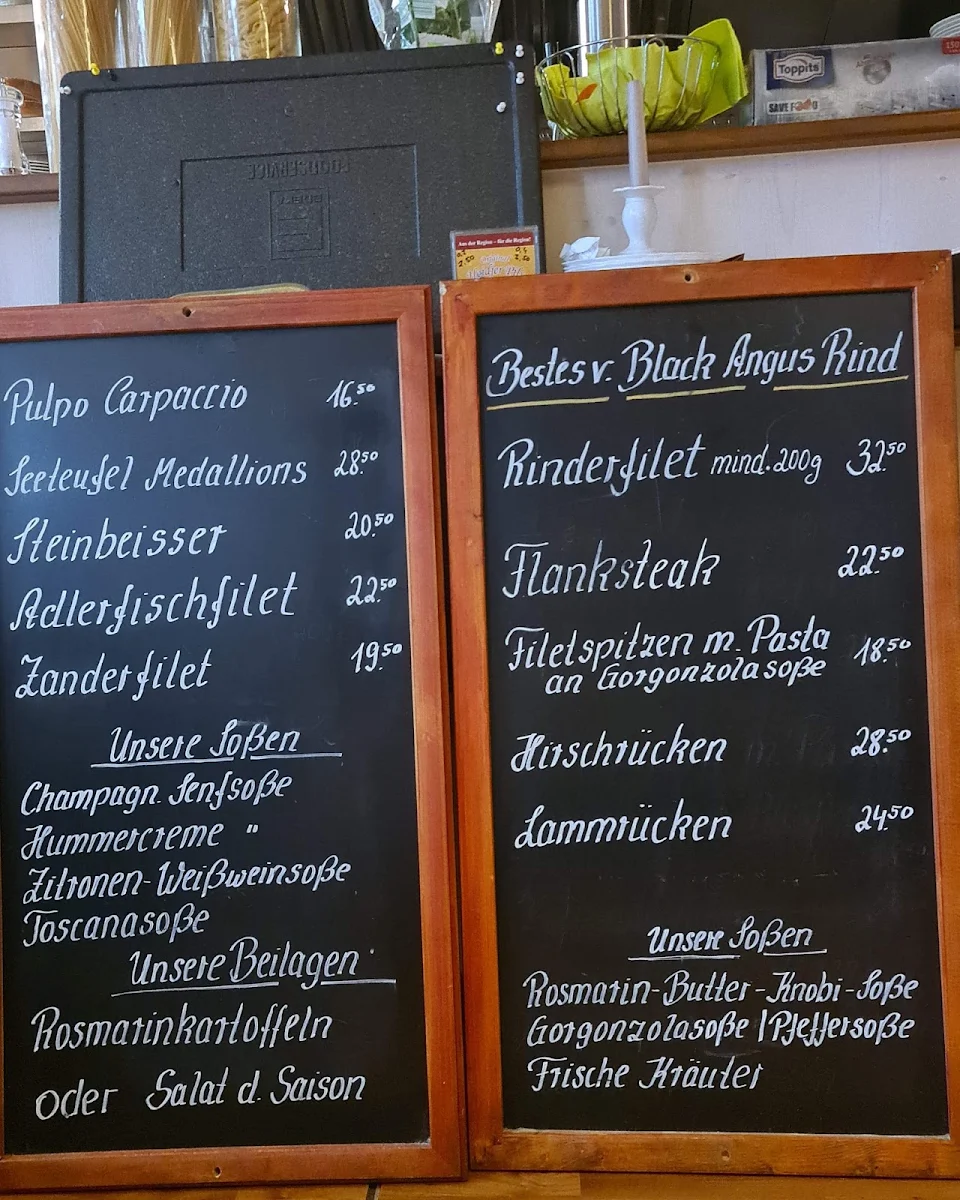 FOODSERVICE
Toppits
SAVE FOOD
Aus der Region - für die Region!
Pulpo Carpaccio 16.50
Seeteufel Medallions 28.50
Steinbeisser 20.50
Adlerfischfilet 22.50
Zanderfilet 19.50
Unsere Soßen
Champagn. Senfsoße
Hummercreme "
Zitronen-Weißweinsoße
Toscanasoße
Unsere Beilagen
Rosmarinkartoffeln
oder Salat d. Saison
Bestes v. Black Angus Rind
Rinderfilet mind. 200g 32.50
Flanksteak 22.50
Filetspitzen m. Pasta 18.50
an Gorgonzolasoße
Hirschrücken 28.50
Lammrücken 24.50
Unsere Soßen
Rosmarin-Butter-Knobi-Soße
Gorgonzolasoße | Pfeffersoße
Frische Kräuter